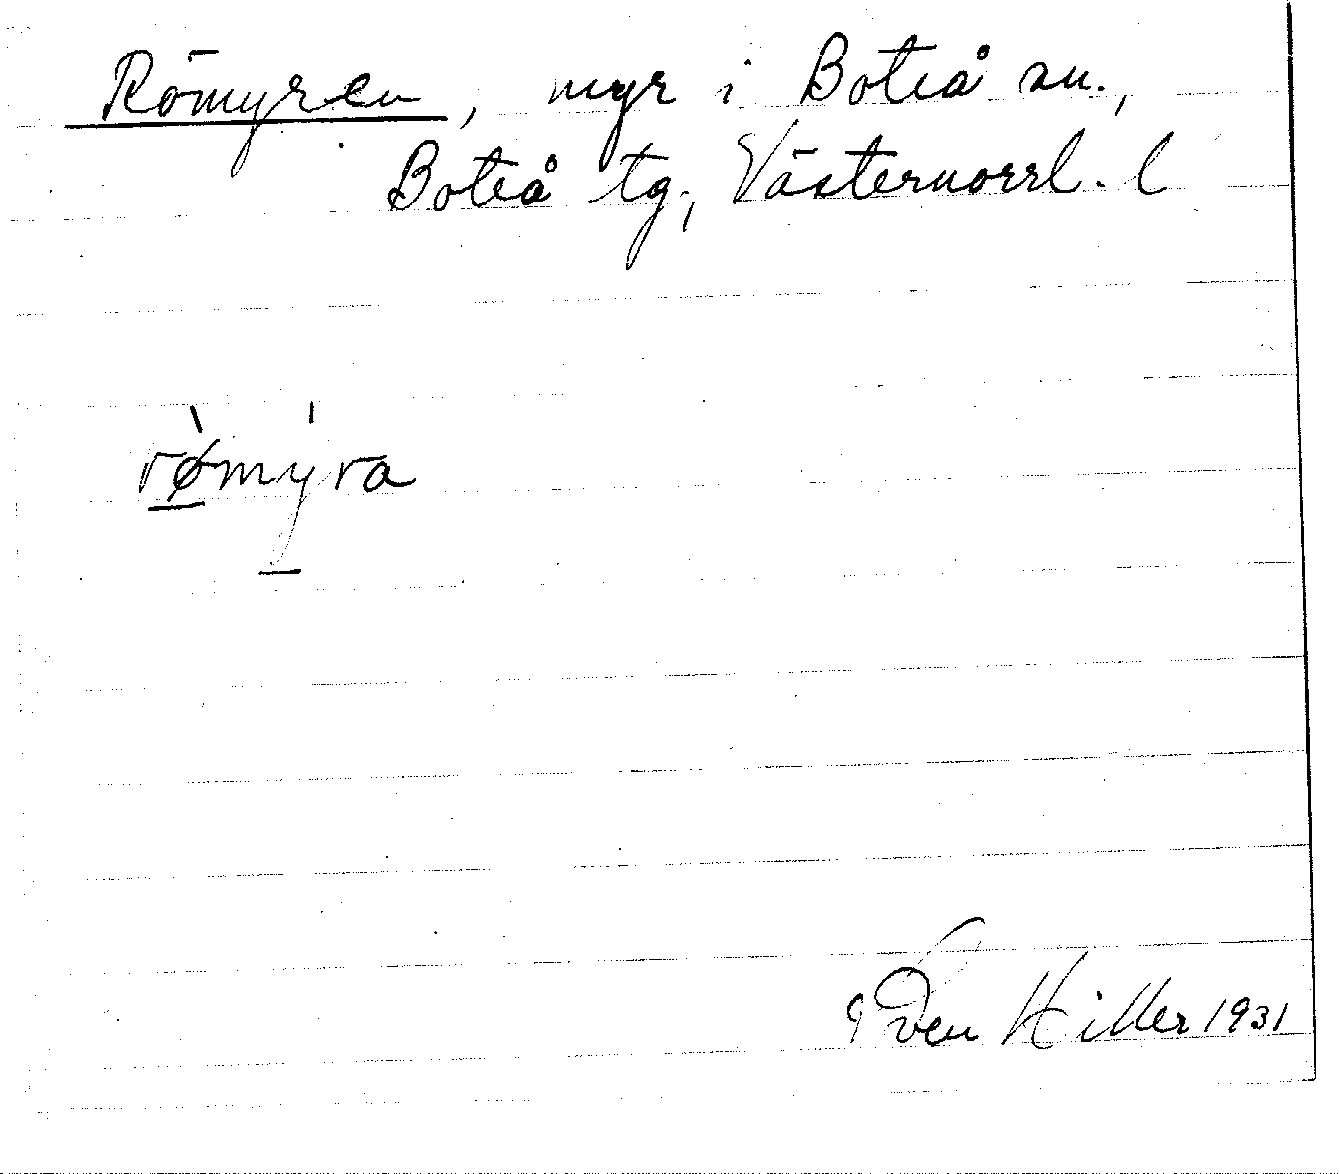 Römyren, myr i Boteå sn.,
Boteå tg, Västernorrl. l
rø̀mýra
Sven Hiller 1931